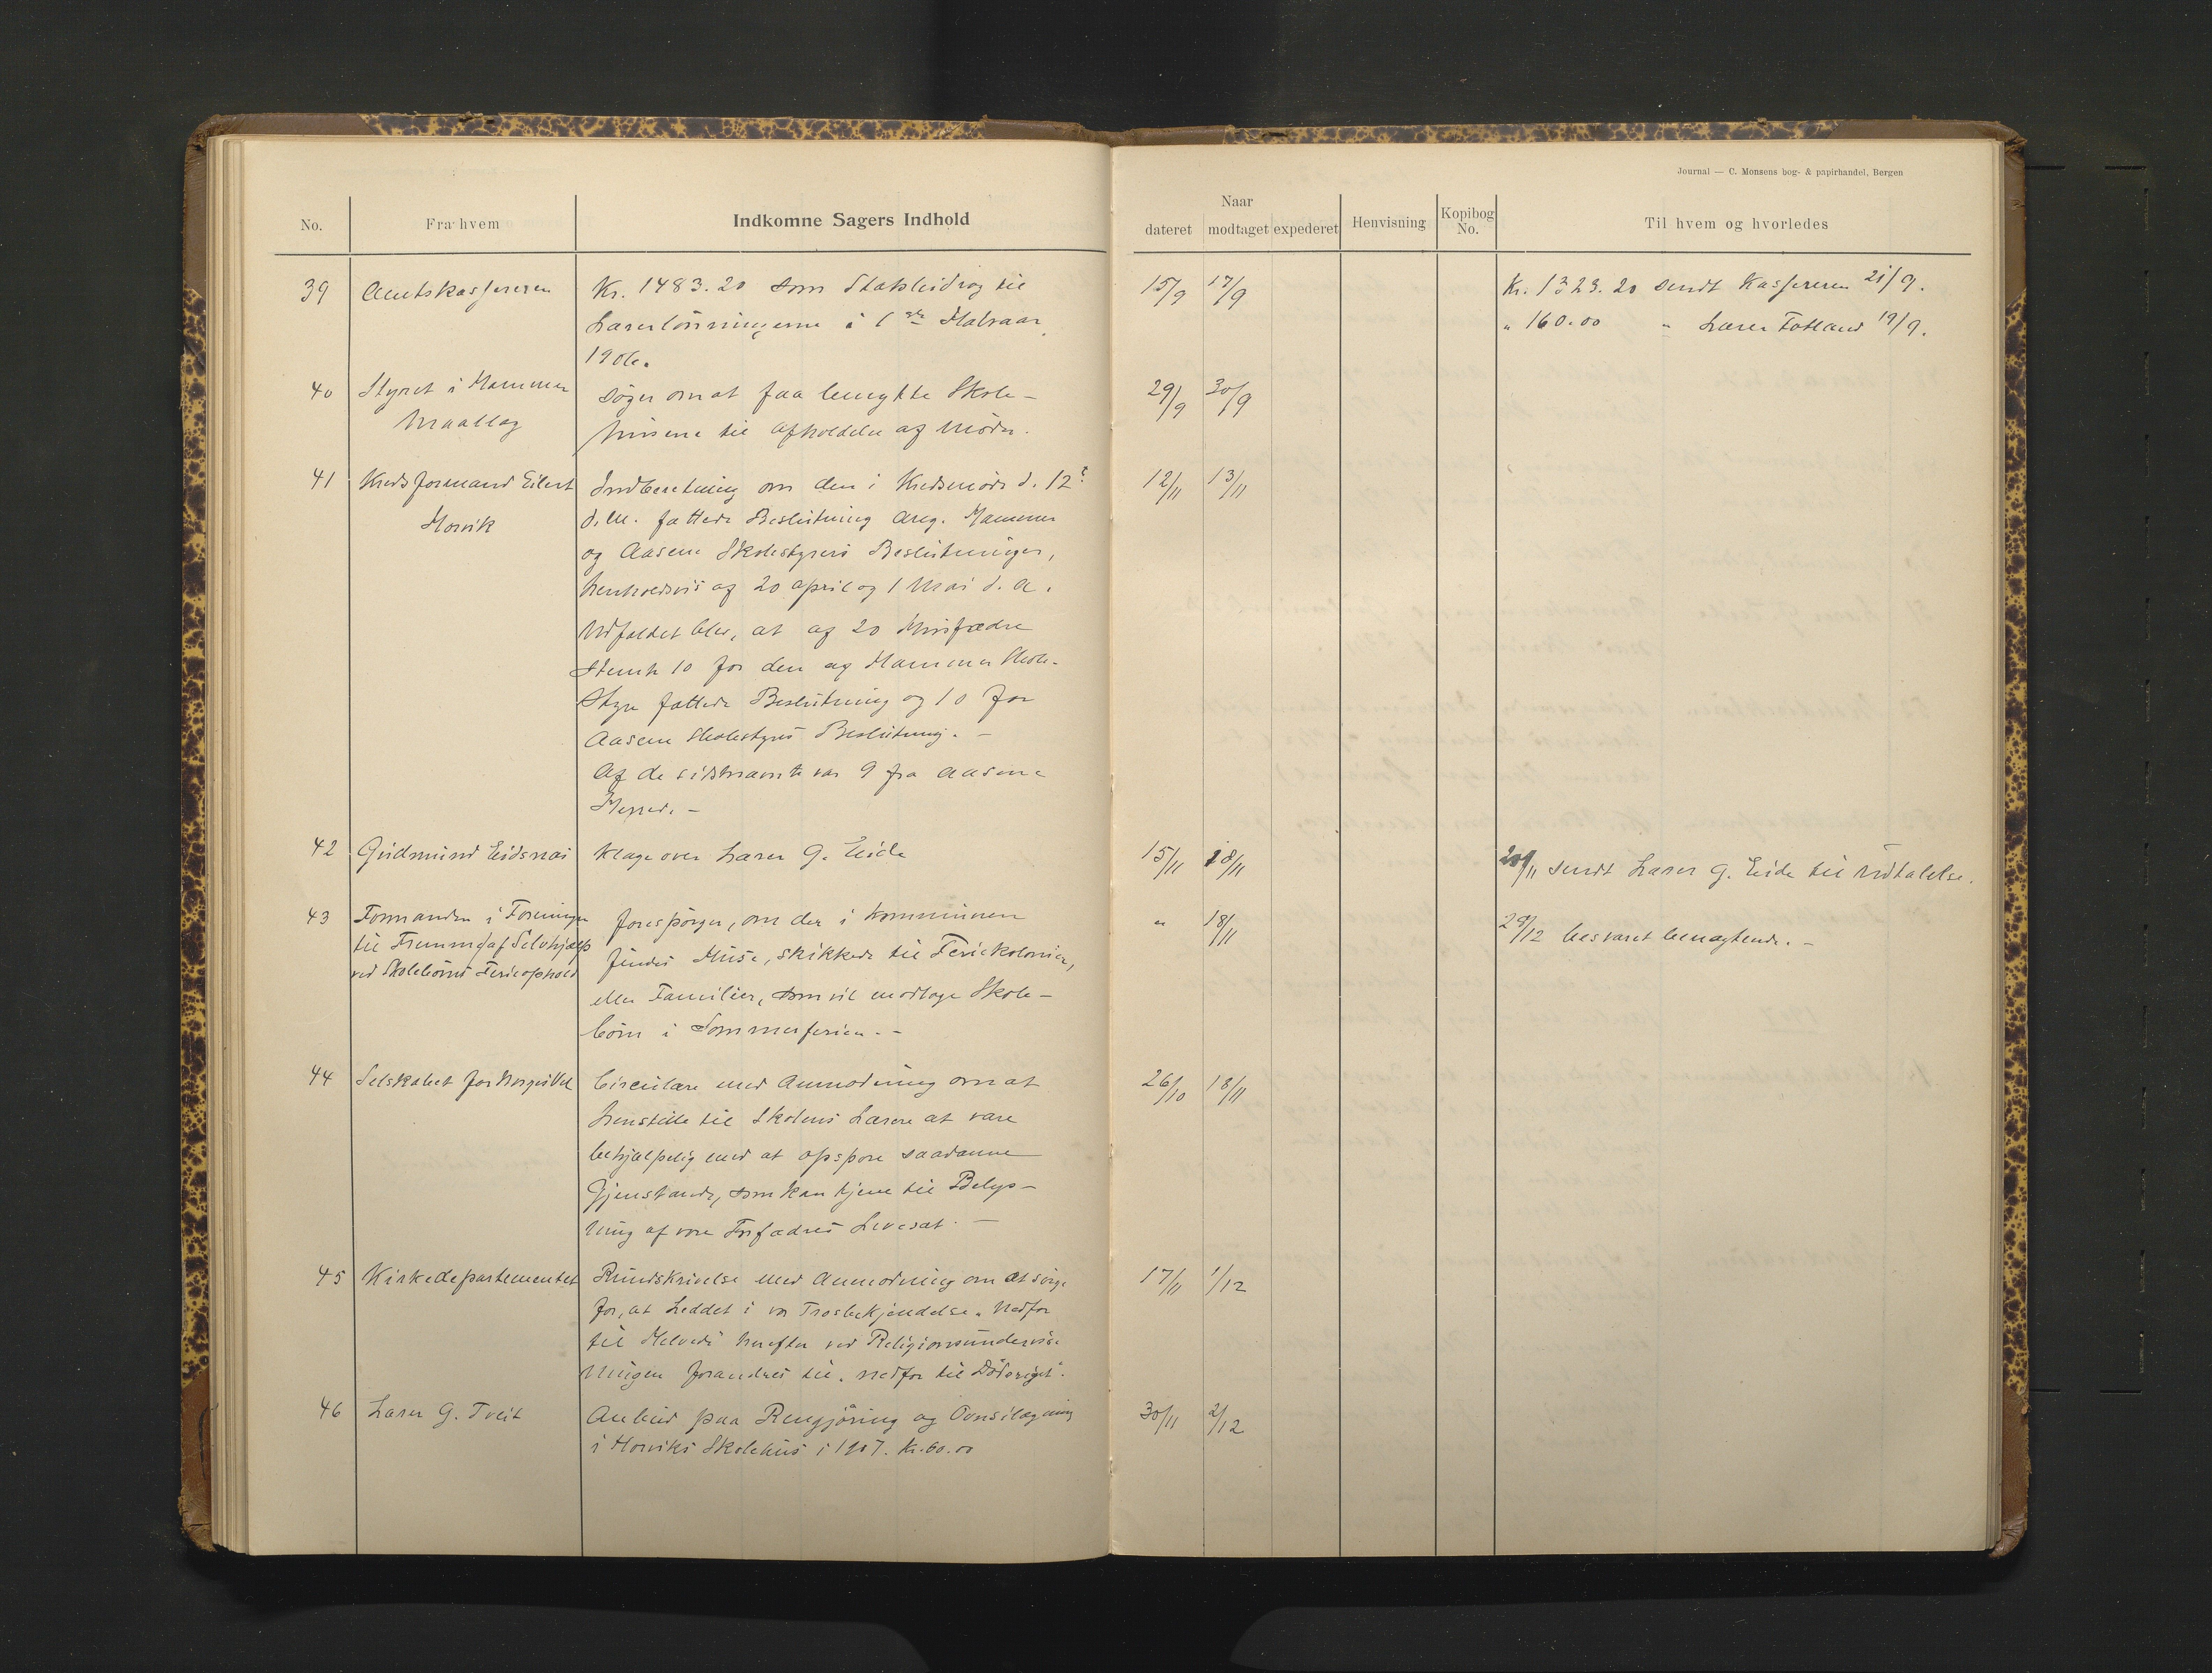 Journal — C. Monsens bog- & papirhandel, Bergen
No. Fra hvem Indkomne Sagers Indhold
Naar
dateret modtaget expederet Henvisning Kopibog No. Til hvem og hvorledes
39 Amtskassereren Kr. 1483.20 som Statsbidrag til 15/9 17/9 Kr. 1323.20 sendt Kassereren 21/9.
Lærerlönningerne i 1ste Halvaar „ 160.00 „ Lærer Totland 19/9.
1906.
40 Styret i Hammer søger om at faa benytte Skole- 29/9 30/9
Maallag husene til Afholdelse af Møder.
41 Kredsformand Eilert Indberetning om den i Kredsmøde d. 12te 12/11 13/11
Horvik d.M. fattede Beslutning ang. Hammer
og Aasene Skolestyrers Beslutninger,
henholdsvis af 20 April og 1 Mai d. A.
Udfaldet blev, at af 20 Husfædre
stemte 10 for den af Hammer Skole-
styre fattede Beslutning og 10 for
Aasene Skolestyres Beslutning. —
Af de sidstnævnte var 9 fra Aasene
Herred. —
42 Gudmund Eidsnæs Klage over Lærer G. Eide 15/11 18/11 20/11 sendt Lærer G. Eide til Udtalelse.
43 Formanden i Foreningen forespörger, om der i Kommunen „ 18/11 29/12 besvaret benægtende. —
til Fremme af Selvhjælp findes Huse, skikkede til Feriekolonier,
ved Skolebörns Ferieophold eller Familier, som vil modtage Skole-
börn i Sommerferien. —
44 Selskabet for Norges Vel Circulære med Anmodning om at 26/10 18/11
henstille til Skolens Lærere at være
behjælpelig med at opspore saadanne
Gjenstande, som kan tjene til Belys-
ning af vore Forfædres Levesæt. —
45 Kirkedepartementet Rundskrivelse med Anmodning om at sörge 17/11 1/12
for, at Leddet i vor Trosbekjendelse „Nedfor
til Helvede" herefter ved Religionsundervis-
ningen forandres til „nedfor til Dödsriget".
46 Lærer G. Tveit Anbud paa Rengjöring og Ovnsilægning 30/11 2/12
i Horviks Skolehus i 1907. Kr. 60.00